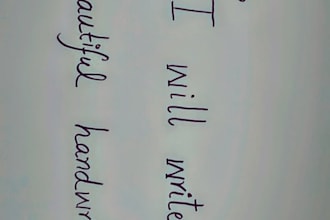 I will write
autiful handwr